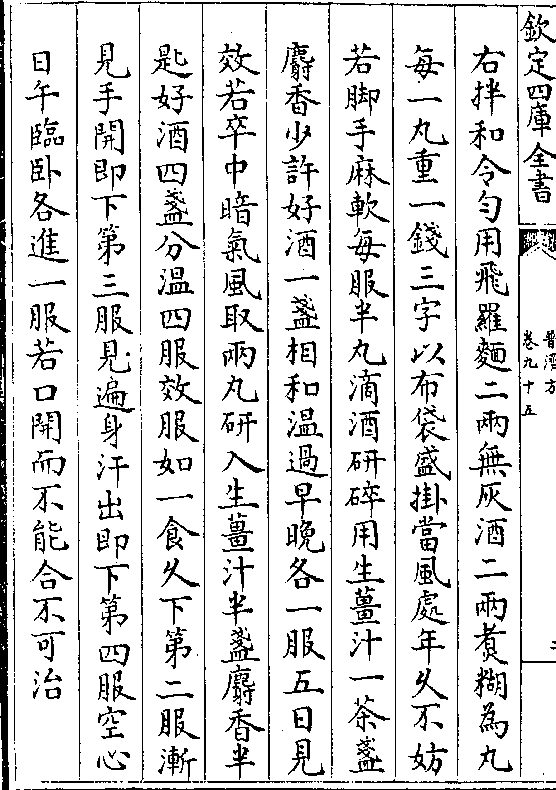 欽定四庫全書
普濟方
卷九十五
右拌和令勻用飛羅麵二兩無灰酒二兩煑糊為丸
每一丸重一錢三字以布袋盛掛當風處年久不妨
若脚手麻軟每服半丸滴酒研碎用生薑汁一茶盞
麝香少許好酒一盞相和温過早晚各一服五日見
效若卒中暗氣風取兩丸研入生薑汁半盞麝香半
匙好酒四盞分温四服效服如一食久下第二服漸
見手開即下第三服見遍身汗出即下第四服空心
日午臨卧各進一服若口開而不能合不可治